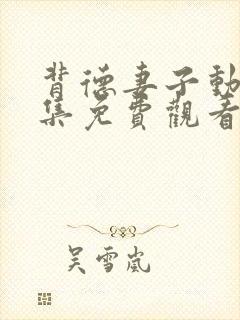 背德妻子動
集免費觀看
吴雪嵐